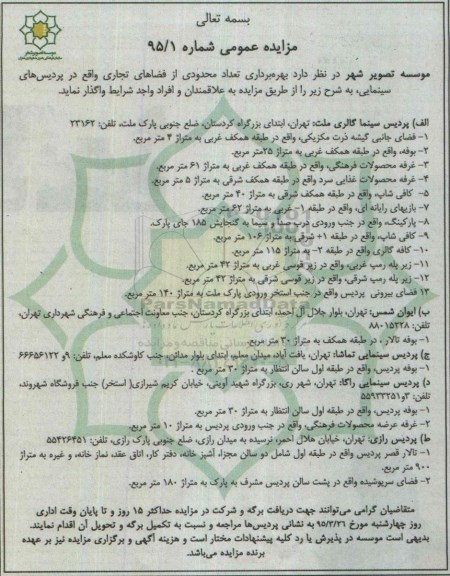 بسمه تعالی
مزایده عمومی شماره ۹۵/۱
موسسه تصویر شهر در نظر دارد بهره‌برداری تعداد محدودی از فضاهای تجاری واقع در پردیس‌های
سینمایی، به شرح زیر را از طریق مزایده به علاقمندان و افراد واجد شرایط واگذار نماید.
الف) پردیس سینما گالری ملت: تهران، ابتدای بزرگراه کردستان، ضلع جنوبی پارک ملت، تلفن: ۲۳۱۶۲
۱- فضای جانبی گیشه ذرت مکزیکی، واقع در طبقه همکف غربی به متراژ ۴ متر مربع.
۲- بوفه، واقع در طبقه همکف غربی به متراژ ۲۵متر مربع.
۳- غرفه محصولات فرهنگی، واقع در طبقه همکف غربی به متراژ ۶۱ متر مربع.
۴- غرفه محصولات غذایی سرد واقع در طبقه همکف شرقی به متراژ ۵ متر مربع.
۵- کافی شاپ، واقع در طبقه همکف شرقی به متراژ ۴۰ متر مربع.
۷- بازیهای رایانه ای، واقع در طبقه ۱- غربی به متراژ ۶۲ متر مربع.
۸- پارکینگ، واقع در جنب ورودی درب صدا و سیما به گنجایش ۱۸۵ جای پارک.
۹- کافی شاپ، واقع در طبقه ۱+ شرقی به متراژ ۱۰۶ متر مربع.
۱۰- کافه گالری واقع در طبقه ۲- به متراژ ۱۱۵ متر مربع.
۱۱- زیر پله رمپ غربی، واقع در زیر قوسی غربی به متراژ ۴۲ متر مربع.
۱۲- زیر پله رمپ شرقی، واقع در زیر قوسی شرقی به متراژ ۴۲ متر مربع.
۱۳ فضای بیرونی پردیس واقع در جنب استخر ورودی پارک ملت به متراژ ۱۴۰ متر مربع.
ب) ایوان شمس: تهران، بلوار جلال آل احمد، ابتدای بزرگراه کردستان، جنب معاونت اجتماعی و فرهنگی شهرداری تهران،
تلفن: ۸۸۰۱۵۲۲۸
۱- بوفه تالار، در طبقه همکف به متراژ ۳۰ متر مربع.
ج) پردیس سینمایی تماشا: تهران، یافت آباد، میدان معلم، ابتدای بلوار مدائن، جنب کاوشکده معلم، تلفن: ۹و ۶۶۶۵۶۱۲۲
۱- بوفه پردیس، واقع در طبقه اول سالن انتظار به متراژ ۳۰ متر مربع.
د) پردیس سینمایی راگا: تهران، شهر ری، بزرگراه شهید آوینی، خیابان کریم شیرازی( استخر) جنب فروشگاه شهروند،
تلفن: ۳و۵۵۹۳۳۲۵۱
۱- بوفه پردیس، واقع در طبقه اول سالن انتظار به متراژ ۳۰ متر مربع.
۲- غرفه عرضه محصولات فرهنگی، واقع در جنب ورودی پردیس به متراژ ۱۰ متر مربع.
ط) پردیس رازی: تهران، خیابان هلال احمر، نرسیده به میدان رازی، ضلع جنوبی پارک رازی، تلفن: ۵۵۴۲۶۴۵۱
۱- تالار قصر پردیس واقع در طبقه اول شامل دو سالن مجزا، آشپز خانه، دفتر کار، اتاق عقد، نماز خانه، و غیره به متراژ
۹۰۰ متر مربع.
۲- فضای سرپوشیده واقع در پشت سالن پردیس مشرف به پارک به متراژ ۱۸۰ متر مربع.
متقاضیان گرامی می‌توانند جهت دریافت برگه و شرکت در مزایده حداکثر ۱۵ روز و تا پایان وقت اداری
روز چهارشنبه مورخ ۹۵/۳/۲۶ به نشانی پردیس‌ها مراجعه و نسبت به تکمیل برگه و تحویل آن اقدام نمایند.
بدیهی است موسسه در پذیرش یا رد کلیه پیشنهادات مختار است و هزینه آگهی و برگزاری مزایده نیز بر عهده
برنده مزایده می‌باشد.
ParsNamadData